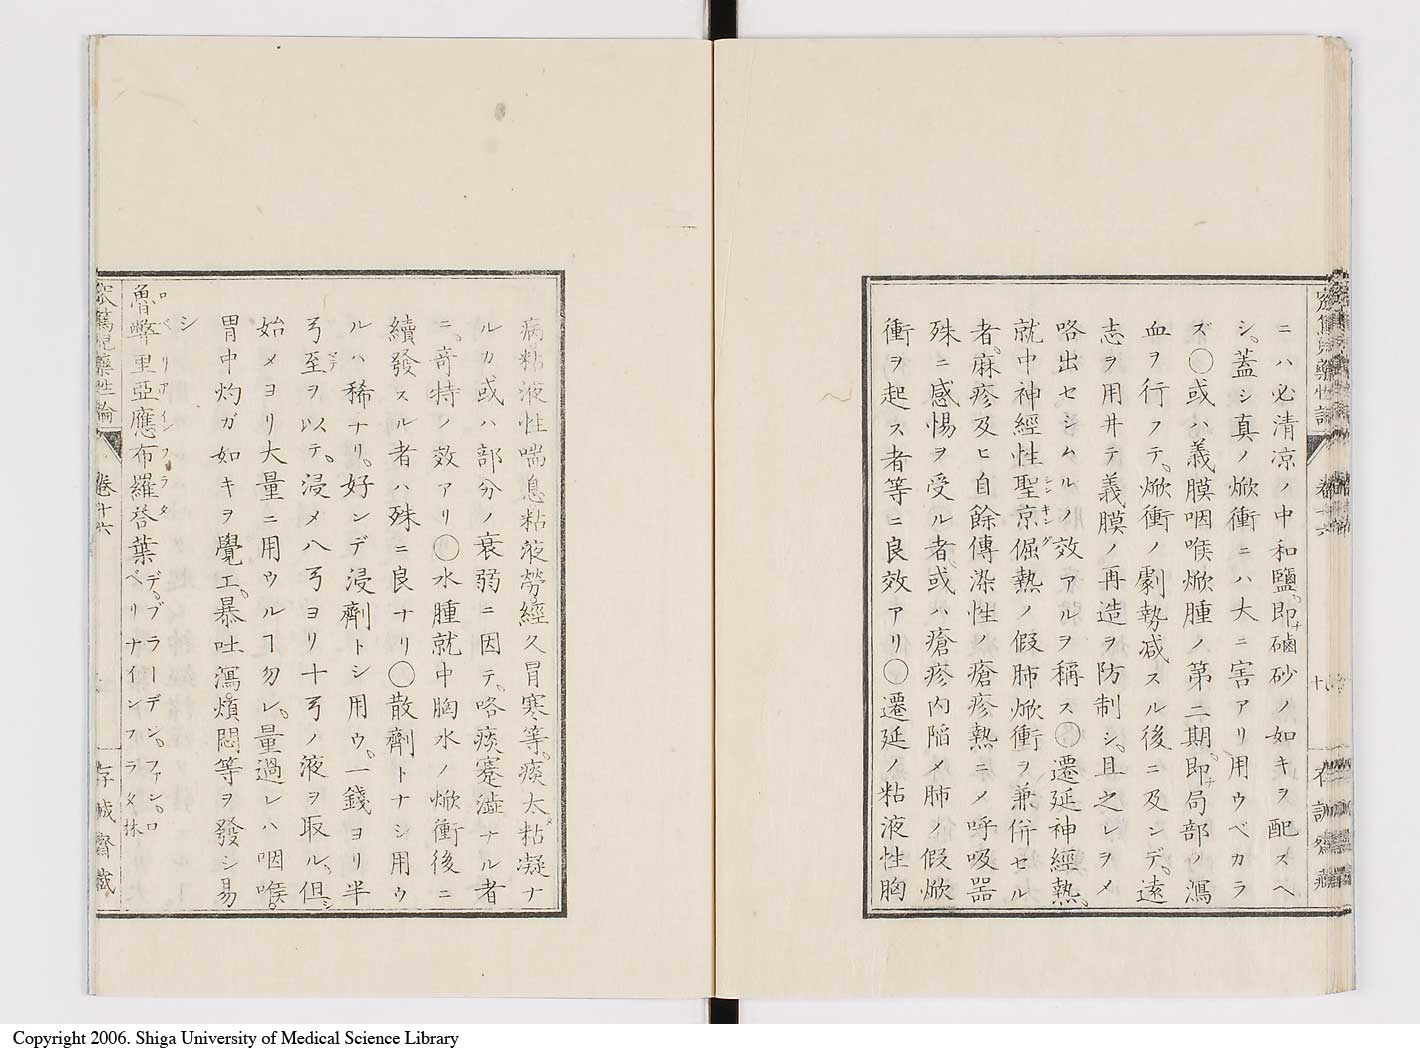 ニハ必清凉ノ中和鹽、即磠砂ノ如キヲ配スヘ
シ、蓋シ真ノ焮衝ニハ大ニ害アリ用ウベカラ
ズ○或ハ義膜咽喉焮腫ノ第二期、即局部ノ瀉
血ヲ行フテ、焮衝ノ劇勢减スル後ニ及ンデ、遠
志ヲ用井テ義膜ノ再造ヲ防制シ、且之レヲメ
咯出セシムルノ效アルヲ稱ス○遷延神經熱、
就中神經性聖京倔熱ノ假肺焮衝ヲ兼併セル
者、麻疹及ヒ自餘傳染性ノ瘡疹熱ニメ呼吸器
殊ニ感惕ヲ受ル者、或ハ瘡疹内陥メ肺ノ假焮
衝ヲ起ス者等ニ良效アリ○遷延ノ粘液性胸
病粘液性喘息粘液勞、經久冒寒等、痰太粘凝ナ
ルカ或ハ部分ノ衰弱ニ因テ、咯痰蹇澁ナル者
ニ、奇特ノ效アリ○水腫就中胸水ノ焮衝後ニ
續發スル者ハ殊ニ良ナリ○散劑トナシ用ウ
ルハ稀ナリ、好ンデ浸劑トシ用ウ、一錢ヨリ半
弓至ヲ以テ、浸メ八弓ヨリ十弓ノ液ヲ取ル、但
始メヨリ大量ニ用ウルヿ勿レ、量過レハ咽喉、
胃中灼ガ如キヲ覺エ、暴吐瀉、煩悶等ヲ發シ易
シ
魯弊里亞應布羅荅葉 デ、ブラーデン、ファン、ロ
ベリナインフラタ 抹
卷十六
存誠齋藏
Copyright 2006. Shiga University of Medical Science Library